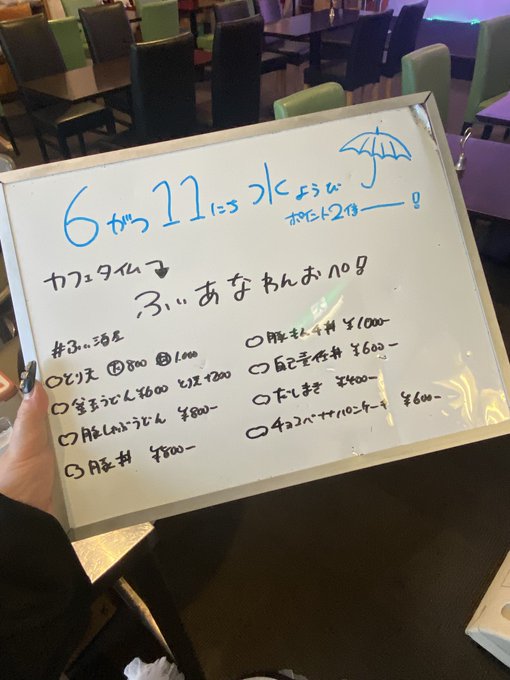 6がつ11にち 水ようび
ポイント2倍ー!
カフェタイム
ふぃあなわんおペ!
#ふぃ酒屋
○とり天 800 1,000
○釜玉うどん ¥600 とり天+200
○豚しゃぶうどん ¥800-
○豚丼 ¥800-
○豚キムチ丼 ¥1000-
○自己責任丼 ¥600-
○だしまき ¥400-
○チョコバナナパンケーキ ¥600-